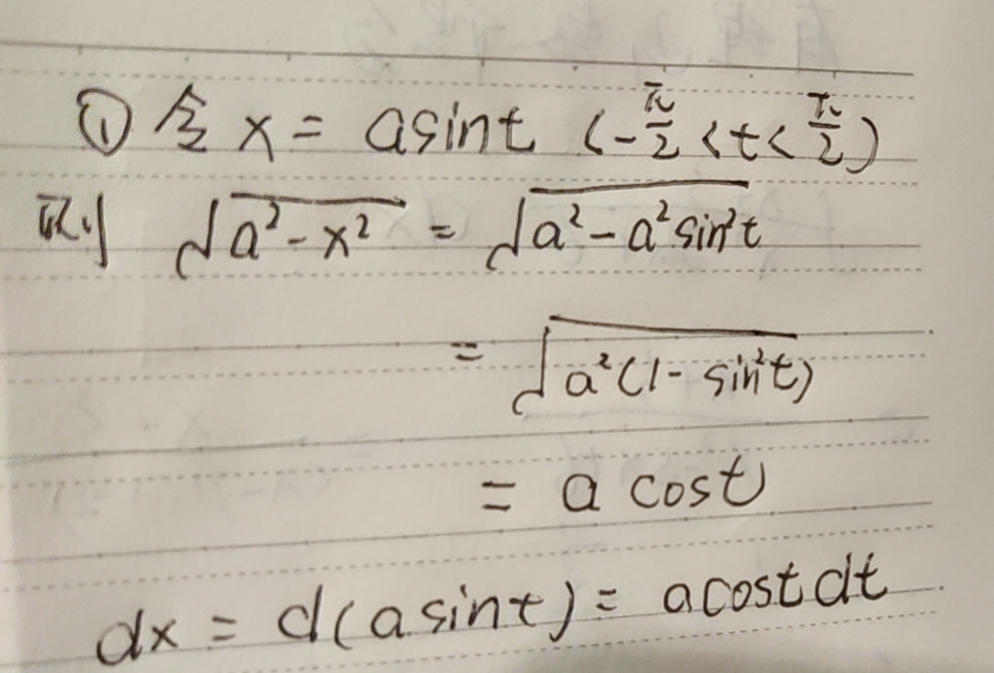 ① 令 x = asint (-π/2 < t < π/2)
则 √(a² - x²) = √(a² - a²sin²t)
= √(a²(1 - sin²t))
= a cost
dx = d(asint) = acostdt